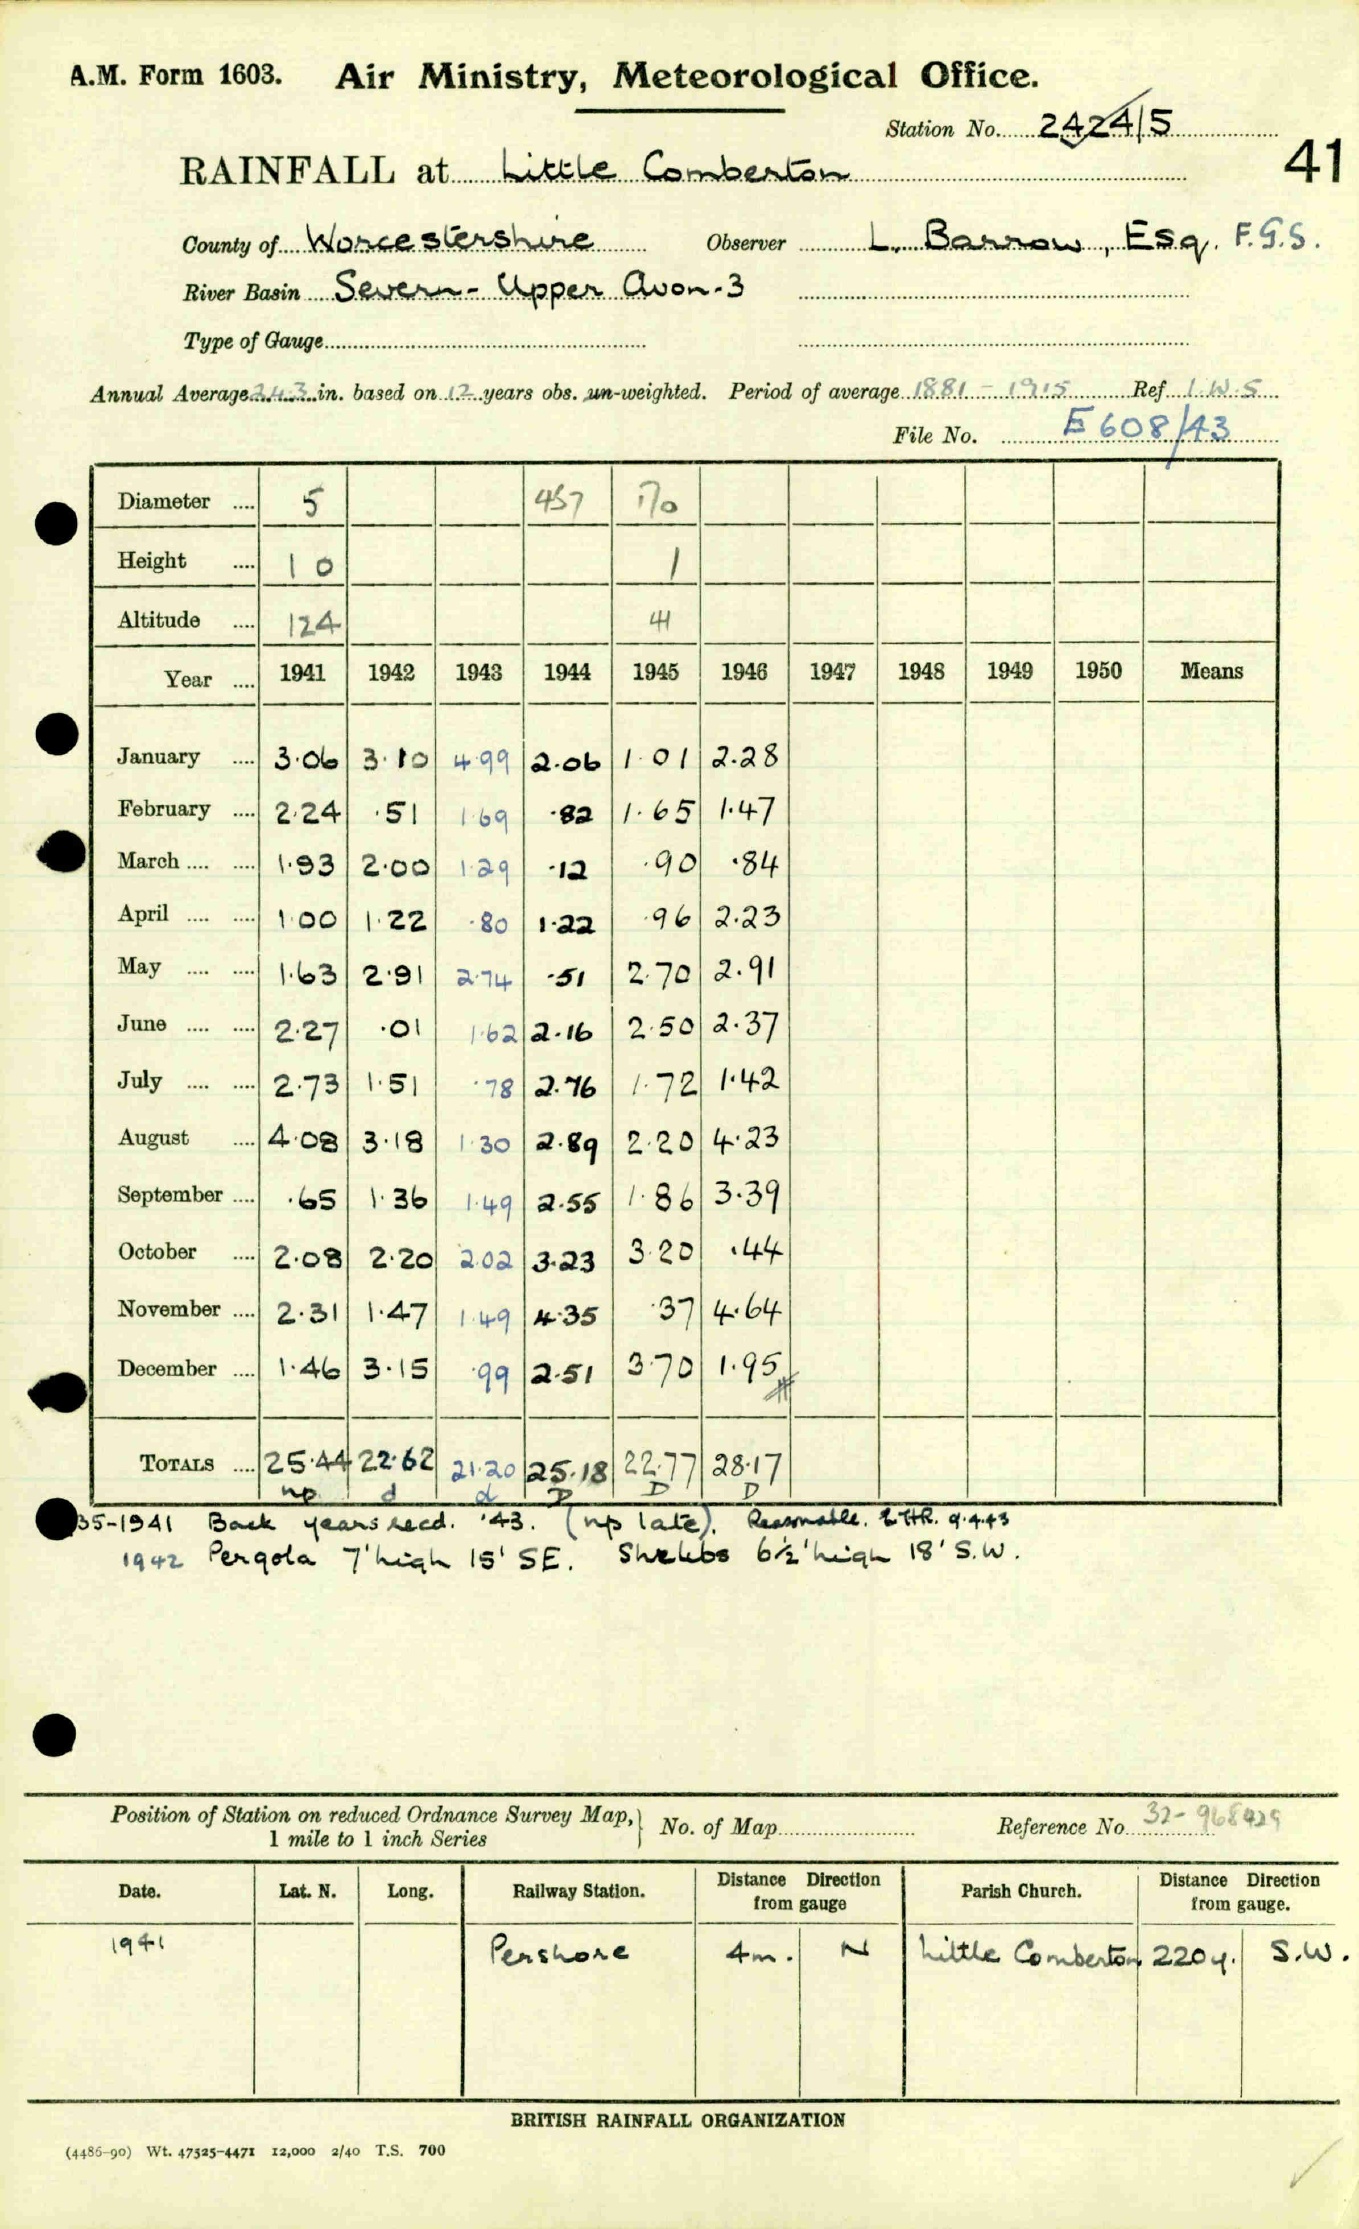 A.M. Form 1603. Air Ministry, Meteorological Office.
Station No. 2424/5
41
RAINFALL at Little Comberton
County of Worcestershire Observer L. Barrow, Esq. F.G.S.
River Basin Severn - Upper Avon - 3
Type of Gauge
Annual Average 24.3 in. based on 12 years obs. un-weighted. Period of average 1881 - 1915 Ref. I.W.S
File No. E608/43
Diameter .... 5 457
Height .... 1 0 1
Altitude .... 124 41
Year .... 1941 1942 1943 1944 1945 1946 1947 1948 1949 1950 Means
January .... 3.06 3.10 4.99 2.06 1.01 2.28
February .... 2.24 .51 1.69 .82 1.65 1.47
March .... .... 1.93 2.00 1.29 .12 .90 .84
April .... .... 1.00 1.22 .80 1.22 .96 2.23
May .... .... 1.63 2.91 2.74 .51 2.70 2.91
June .... .... 2.27 .01 1.62 2.16 2.50 2.37
July .... .... 2.73 1.51 .78 2.76 1.72 1.42
August .... 4.08 3.18 1.30 2.89 2.20 4.23
September .... .65 1.36 1.49 2.55 1.86 3.39
October .... 2.08 2.20 2.02 3.23 3.20 .44
November .... 2.31 1.47 1.49 4.35 .37 4.64
December .... 1.46 3.15 .99 2.51 3.70 1.95
TOTALS .... 25.44 22.62 21.20 25.18 22.77 28.17
np d d D D D
35-1941 Back years recd. '43. (np late). Reasonable. 9.4.43
1942 Pergola 7' high 15' SE. Shrubs 6½' high 18' S.W.
Position of Station on reduced Ordnance Survey Map, 1 mile to 1 inch Series No. of Map Reference No. 32-968429
Date. Lat. N. Long. Railway Station. Distance Direction from gauge Parish Church. Distance Direction from gauge.
1941 Pershore 4m. N Little Comberton 220y. S.W.
BRITISH RAINFALL ORGANIZATION
(4486-90) Wt. 47525-4471 12,000 2/40 T.S. 700